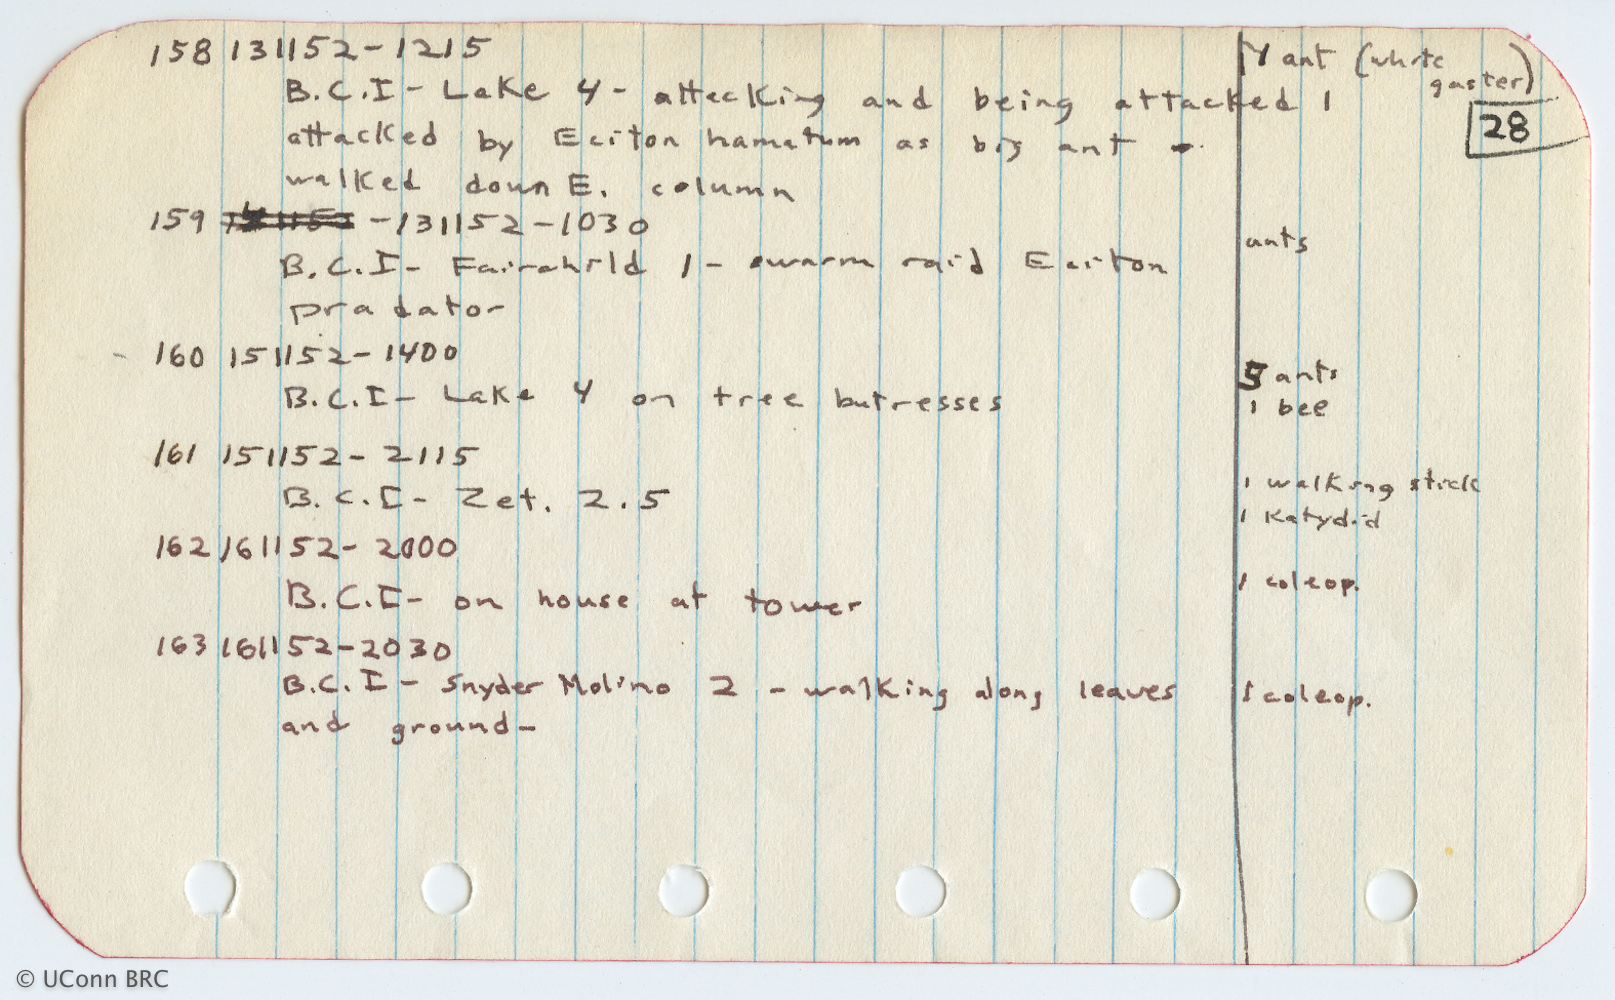 158 131152-1215
1 ant (white
gaster)
B.C.I- Lake 4- attacking and being attacked 1
28
attacked by Eciton hamatum as big ant
walked down E. column
159 -131152-1030
ants
B.C.I- Fairchild 1- swarm raid Eciton
pradator
160 151152-1400
5 ants
B.C.I- Lake 4 on tree butresses
1 bee
161 151152- 2115
1 walking stick
B.C.I- Zet. 2.5
1 Katydid
162 161152- 2000
1 coleop.
B.C.I- on house at tower
163 161152-2030
B.C.I- Snyder Molino 2 - walking along leaves
1 coleop.
and ground-
© UConn BRC